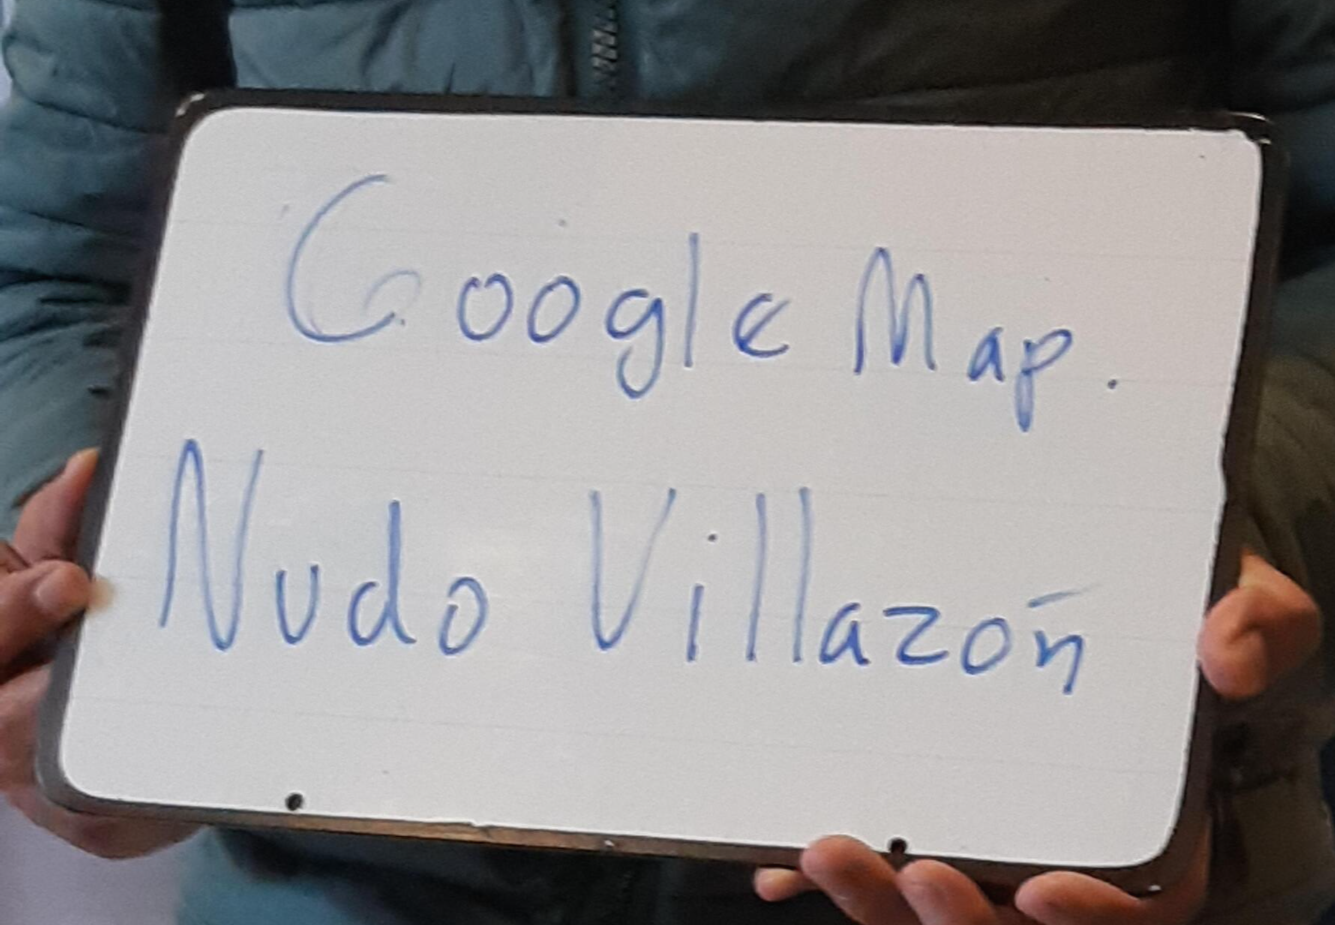 Google Map.
Nudo Villazón